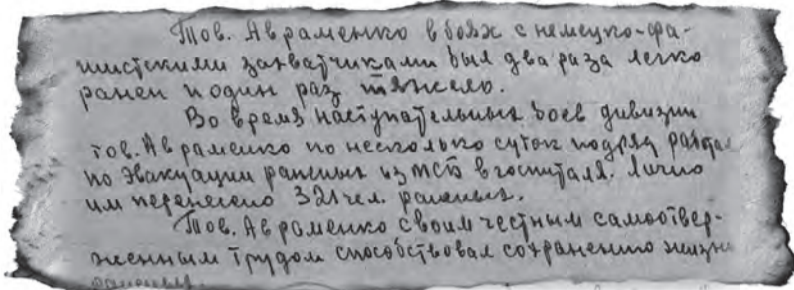 Тов. Авраменко в боях с немецко-фа-
шистскими захватчиками был два раза легко
ранен и один раз тяжело.
Во время наступательных боев дивизии
тов. Авраменко по несколько суток подряд работал
по эвакуации раненых из МСБ в госпиталя. Лично
им перенесено 321 чел. раненых.
Тов. Авраменко своим честным самоотвер-
женным трудом способствовал сохранению жизни
раненых.